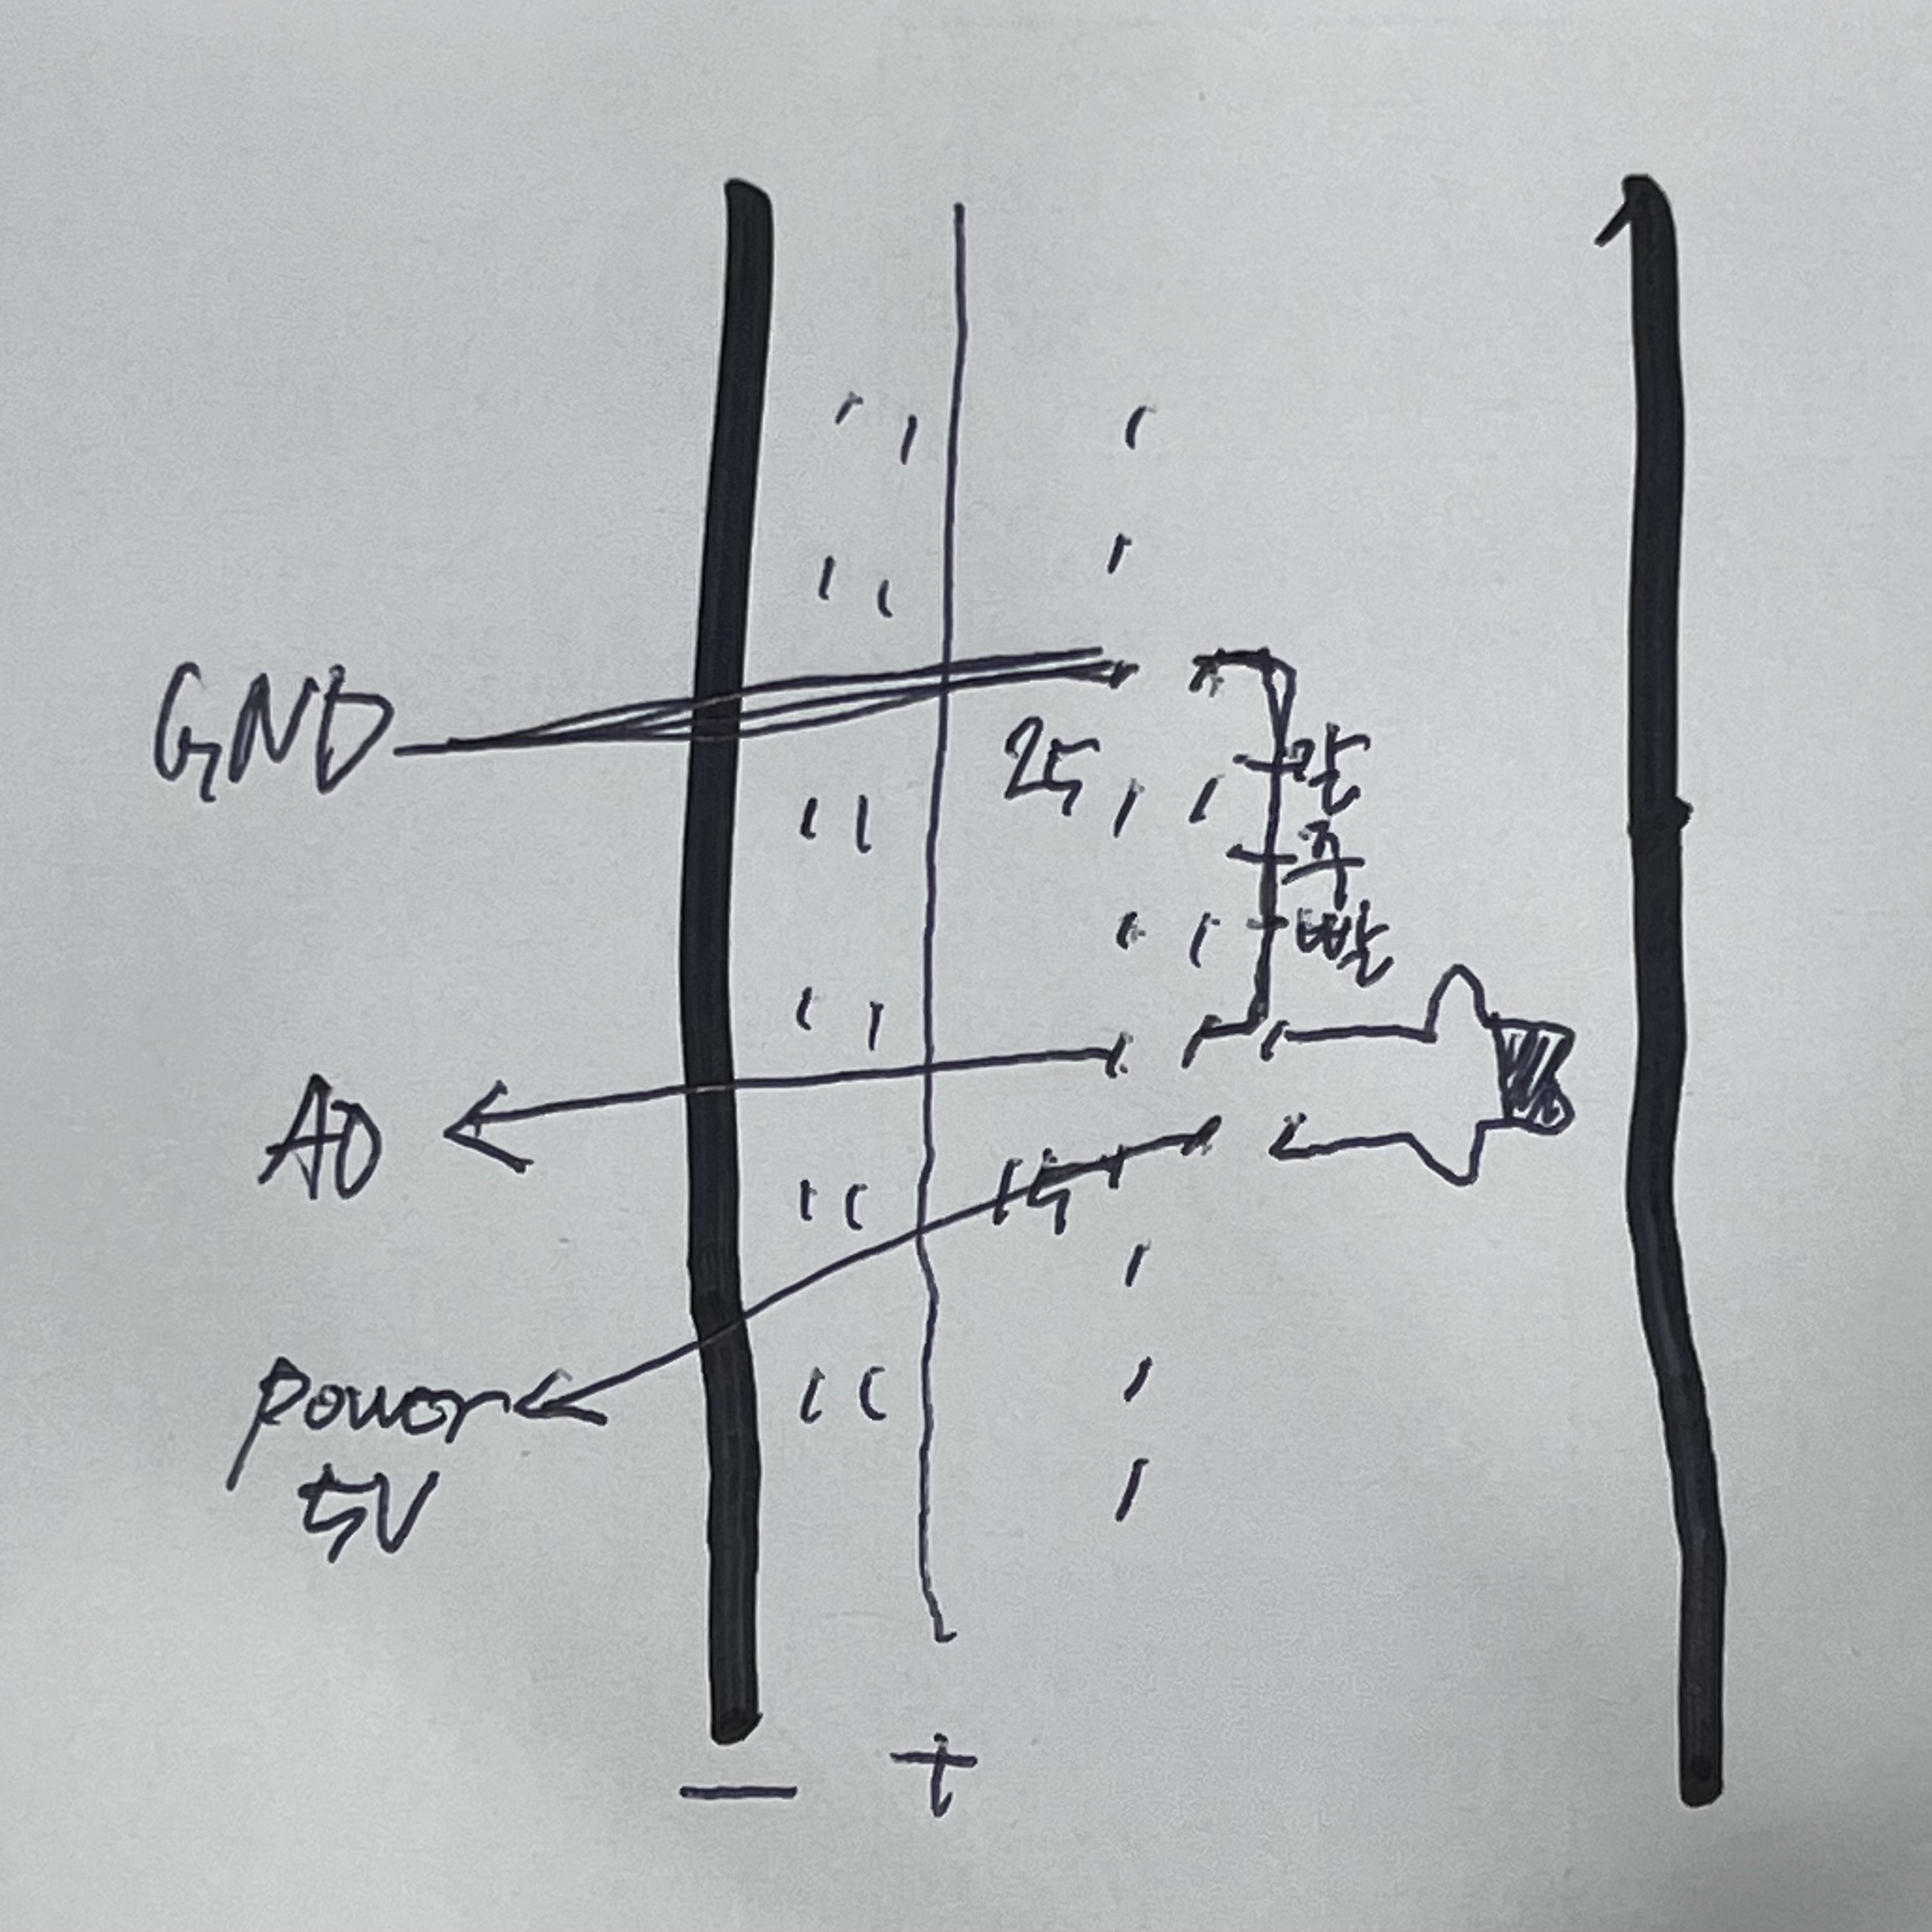 GND
25
갈
주
빨
A0
15
power
5V
- +